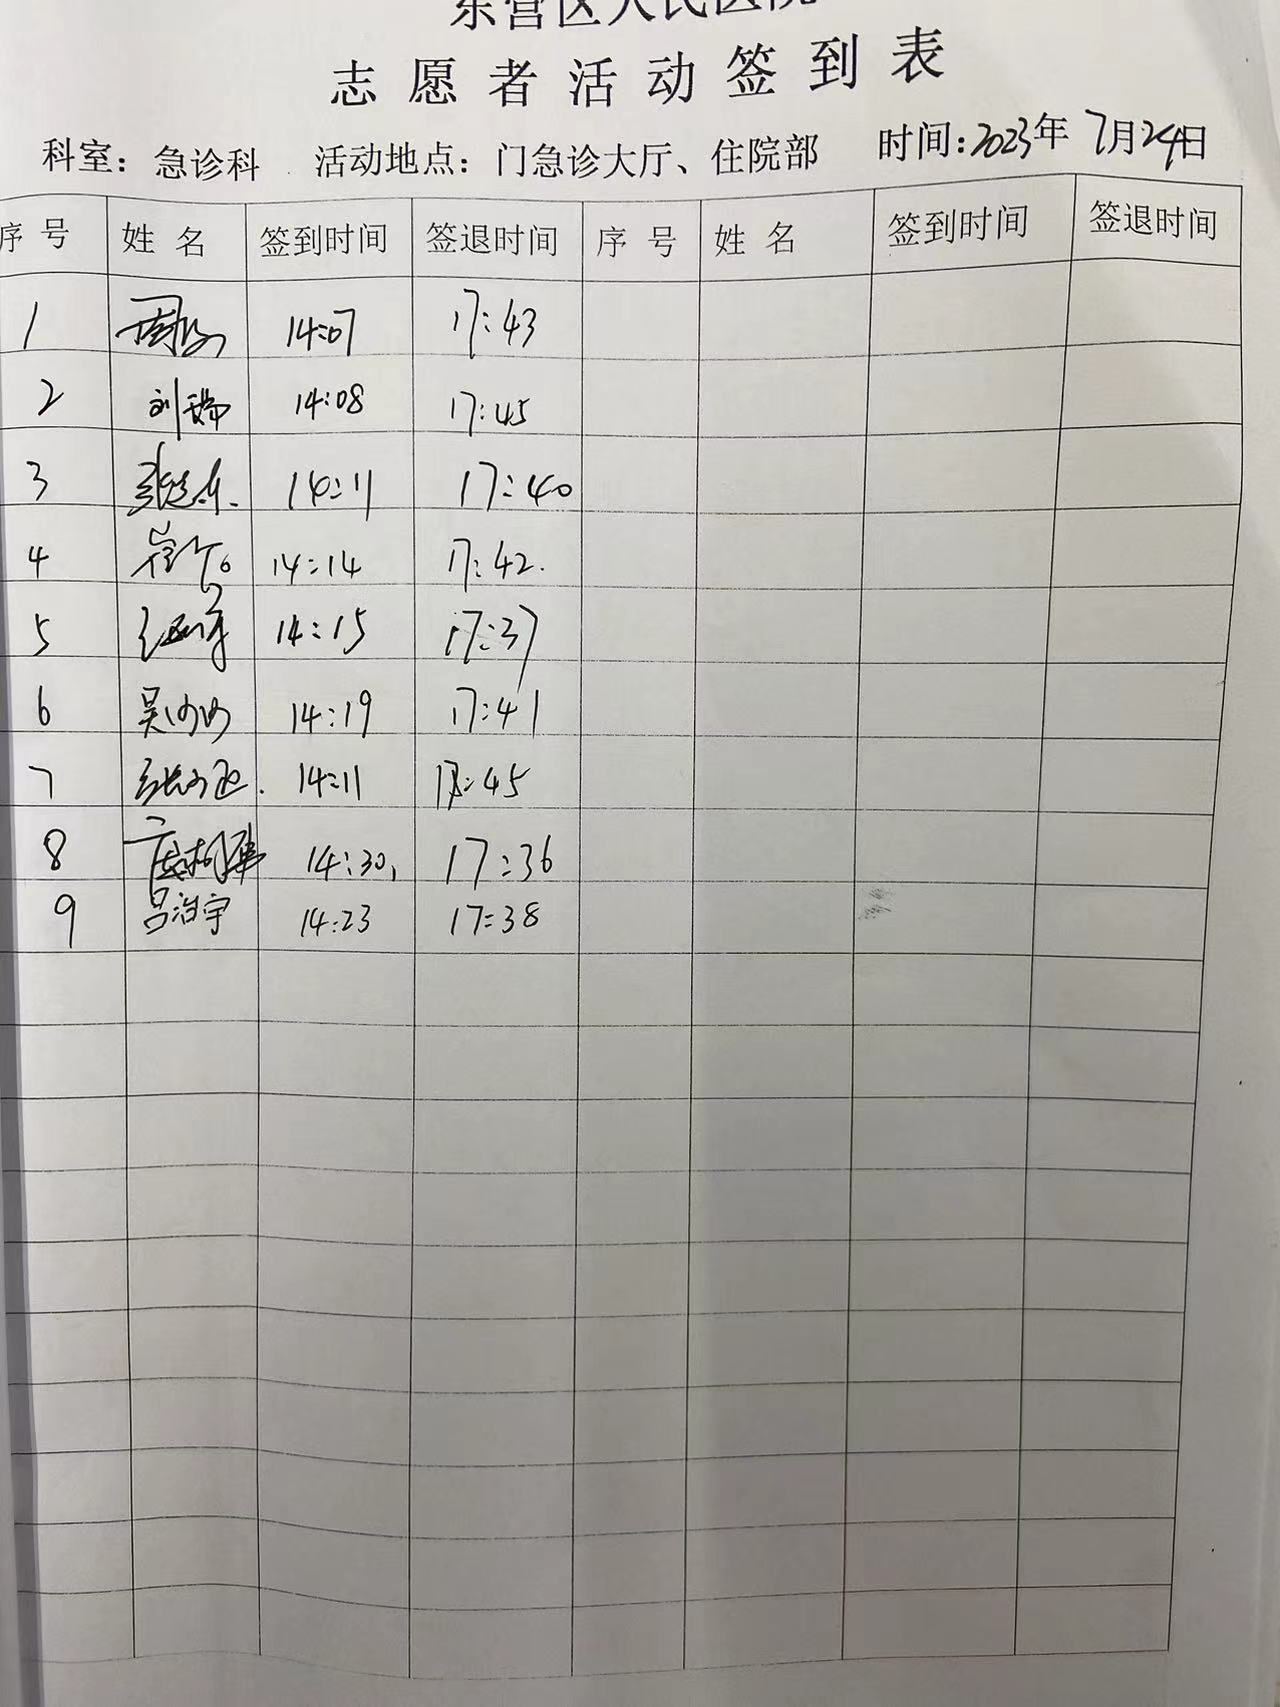 东营区人民医院
志愿者活动签到表
科室：急诊科 活动地点：门急诊大厅、住院部 时间：2023年7月24日
序号 姓名 签到时间 签退时间 序号 姓名 签到时间 签退时间
1 14:07 17:43
2 刘瑞 14:08 17:45
3 14:11 17:40
4 14:14 17:42.
5 14:15 17:37
6 吴 14:19 17:41
7 张 14:11 17:45
8 14:30, 17:36
9 吕治宇 14:23 17:38